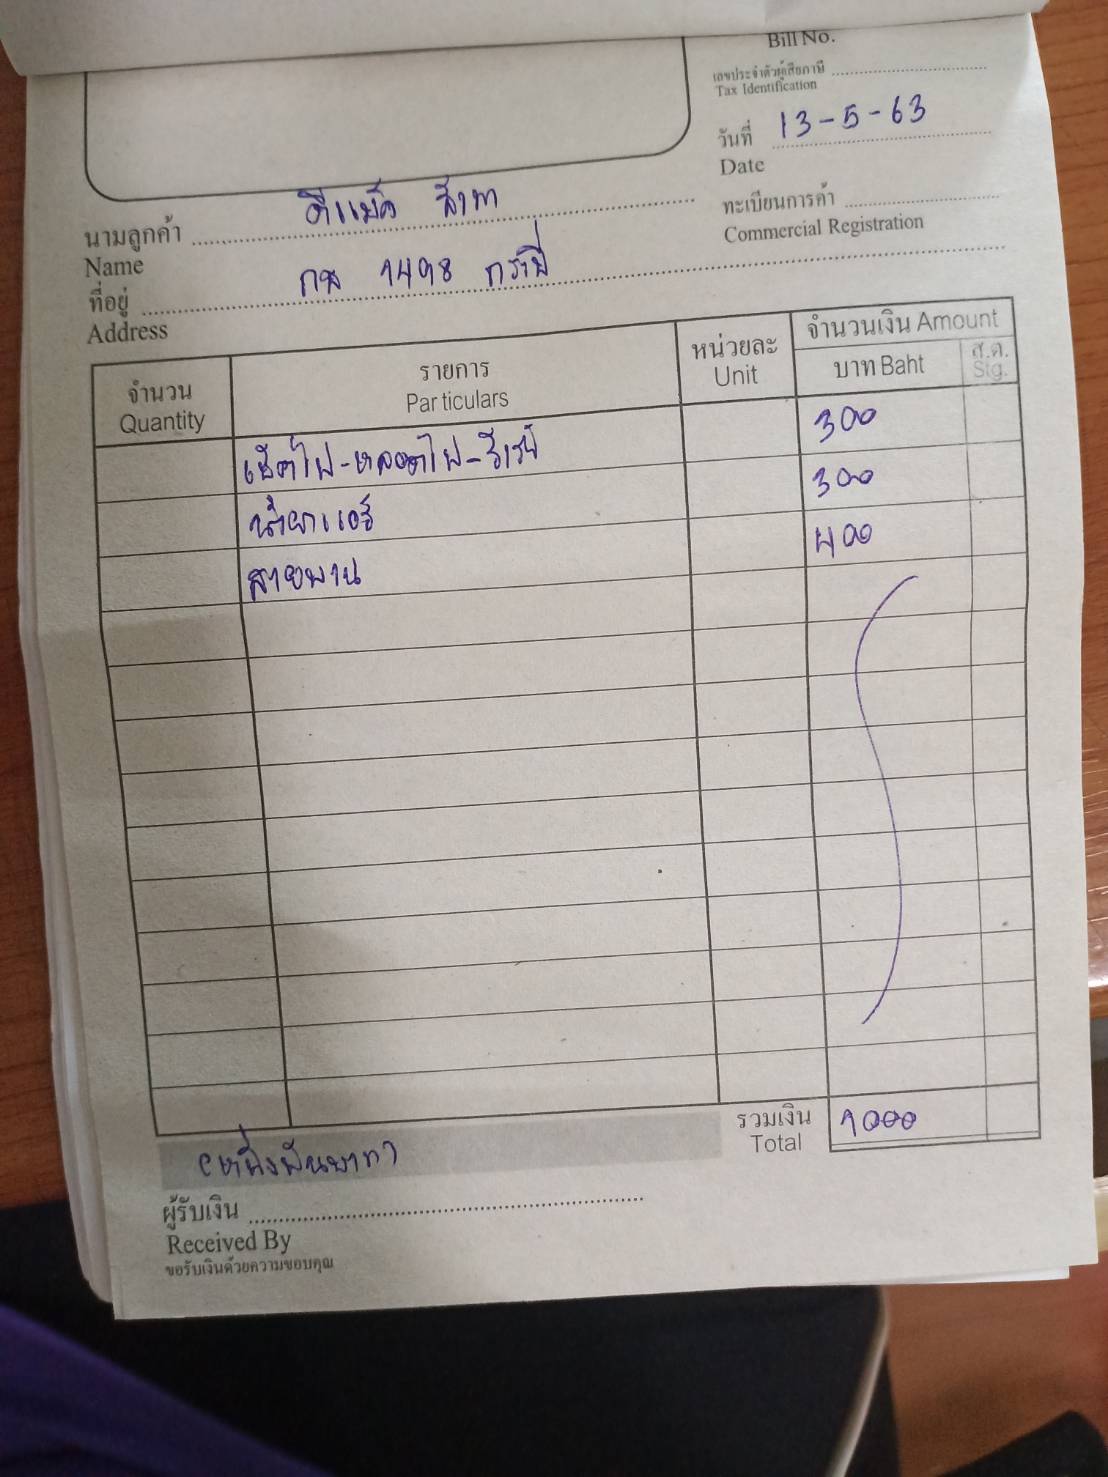 Bill No.
เลขประจำตัวผู้เสียภาษี
Tax Identification
วันที่ 13-5-63
Date
ทะเบียนการค้า
Commercial Registration
นามลูกค้า ดีแม็ค สีเทา
Name
ที่อยู่ กท 1498 กระบี่
Address
จำนวน รายการ หน่วยละ จำนวนเงิน Amount
Quantity Particulars Unit บาท Baht ส.ต. Stg.
เช็คไฟ-หลอดไฟ-รีเรย์ 300
น้ำยาแอร์ 300
สายพาน 400
รวมเงิน 1000
Total
(หนึ่งพันบาท)
ผู้รับเงิน
Received By
ขอรับเงินด้วยความขอบคุณ